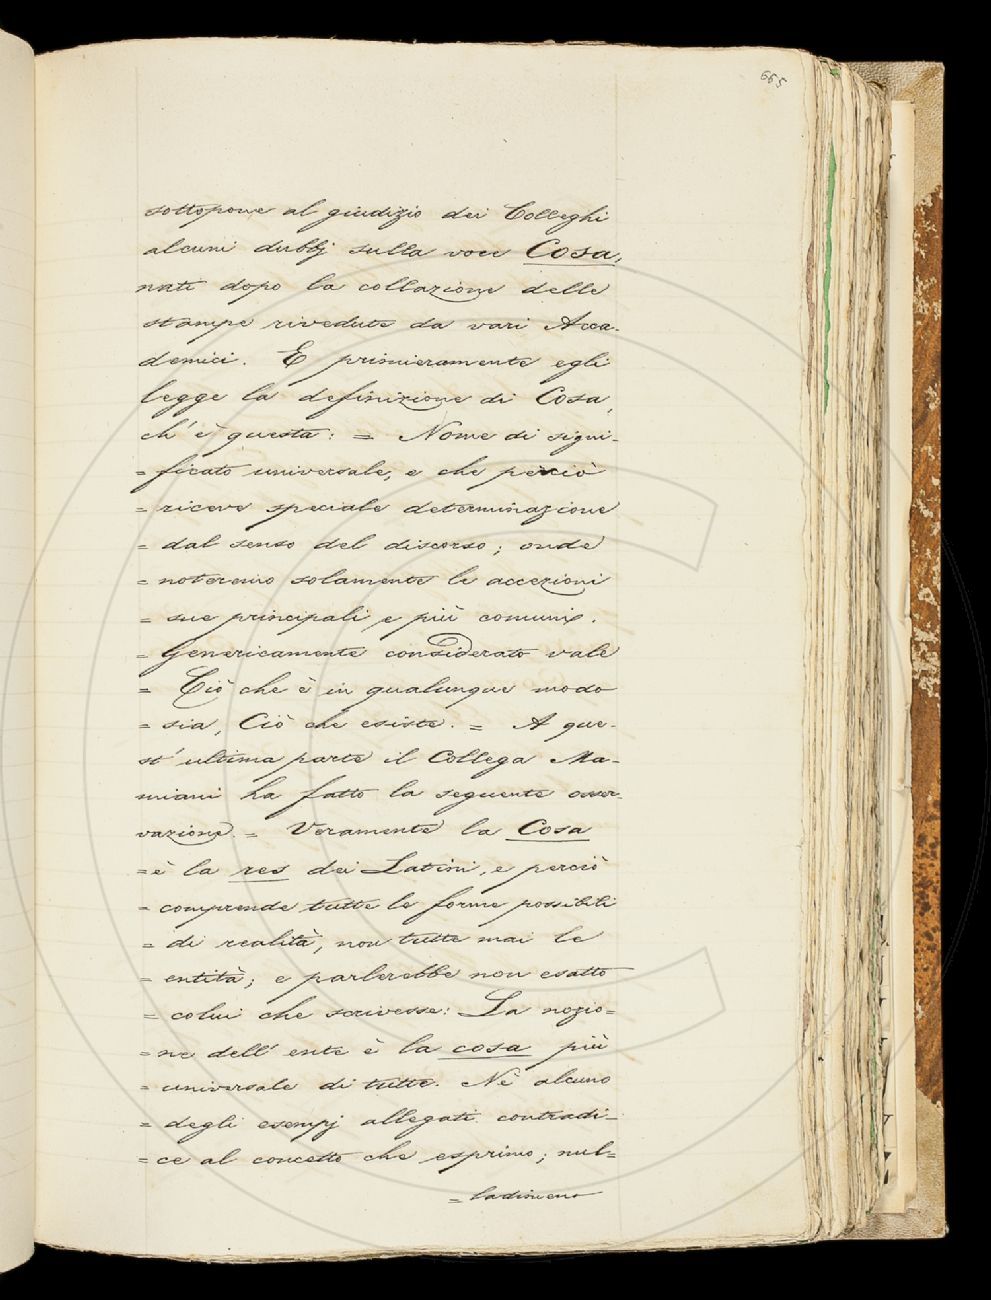 665
sottopone al giudizio dei Colleghi
alcuni dubbj sulla voce Cosa,
nati dopo la collazione delle
stampe rivedute da vari Acca-
demici. E primieramente egli
legge la definizione di Cosa,
ch' è questa: = Nome di signi-
= ficato universale, e che perciò
= riceve speciale determinazione
= dal senso del discorso; onde
= noteremo solamente le accezioni
= sue principali e più comuni.
= Genericamente considerato vale
= Ciò che è in qualunque modo
= sia, Ciò che esiste. = A que-
st' ultima parte il Collega Ma-
miani ha fatto la seguente osser-
vazione. = Veramente la Cosa
= è la res dei Latini, e perciò
= comprende tutte le forme possibili
= di realità, non tutte mai le
= entità; e parlerebbe non esatto
= colui che scrivesse: La nozio=
= ne dell' ente è la cosa più
= universale di tutte. Nè alcuno
= degli esempj allegati contradi-
= ce al concetto che esprimo; nul=
= ladimeno